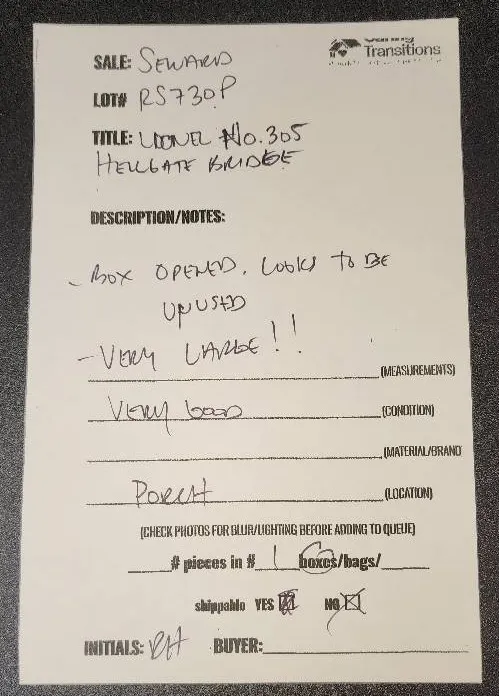 Caring Transitions
SALE: SEWARD
LOT# RS730P
TITLE: LIONEL No. 305
HELLGATE BRIDGE
DESCRIPTION/NOTES:
- BOX OPENED. LOOKS TO BE
UNUSED
- VERY LARGE!!
(MEASUREMENTS)
VERY GOOD (CONDITION)
(MATERIAL/BRAND
PORCH (LOCATION)
(CHECK PHOTOS FOR BLUR/LIGHTING BEFORE ADDING TO QUEUE)
# pieces in # 1 boxes/bags/
shippable YES NO
INITIALS: RH BUYER: